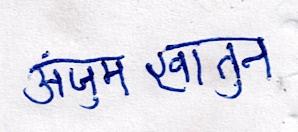 अंजुम खातुन